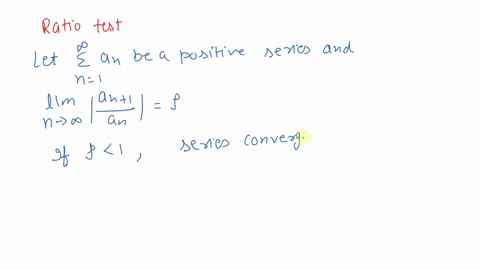 Ratio test
Let ∞ Σ n=1 an be a positive series and
lim n→∞ |an+1 / an| = ρ
If ρ < 1 , series converg.